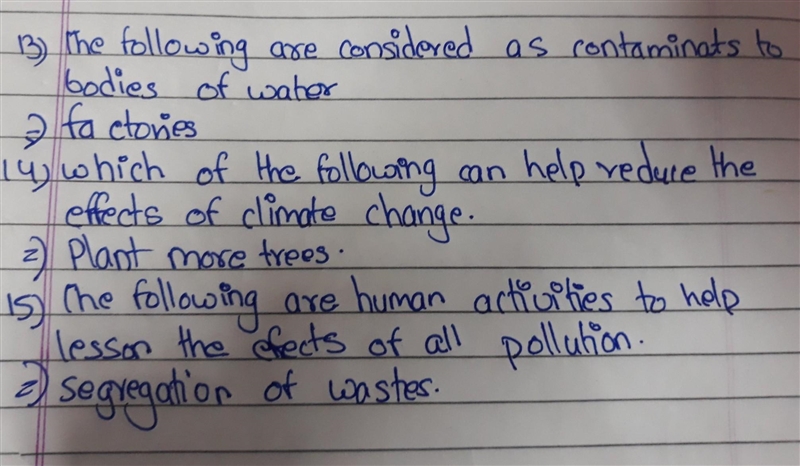 13) The following are considered as contaminats to
bodies of water
=) factories
14) which of the following can help reduce the
effects of climate change.
=) Plant more trees.
15) The following are human activities to help
lesson the efects of all pollution.
=) segregation of wastes.